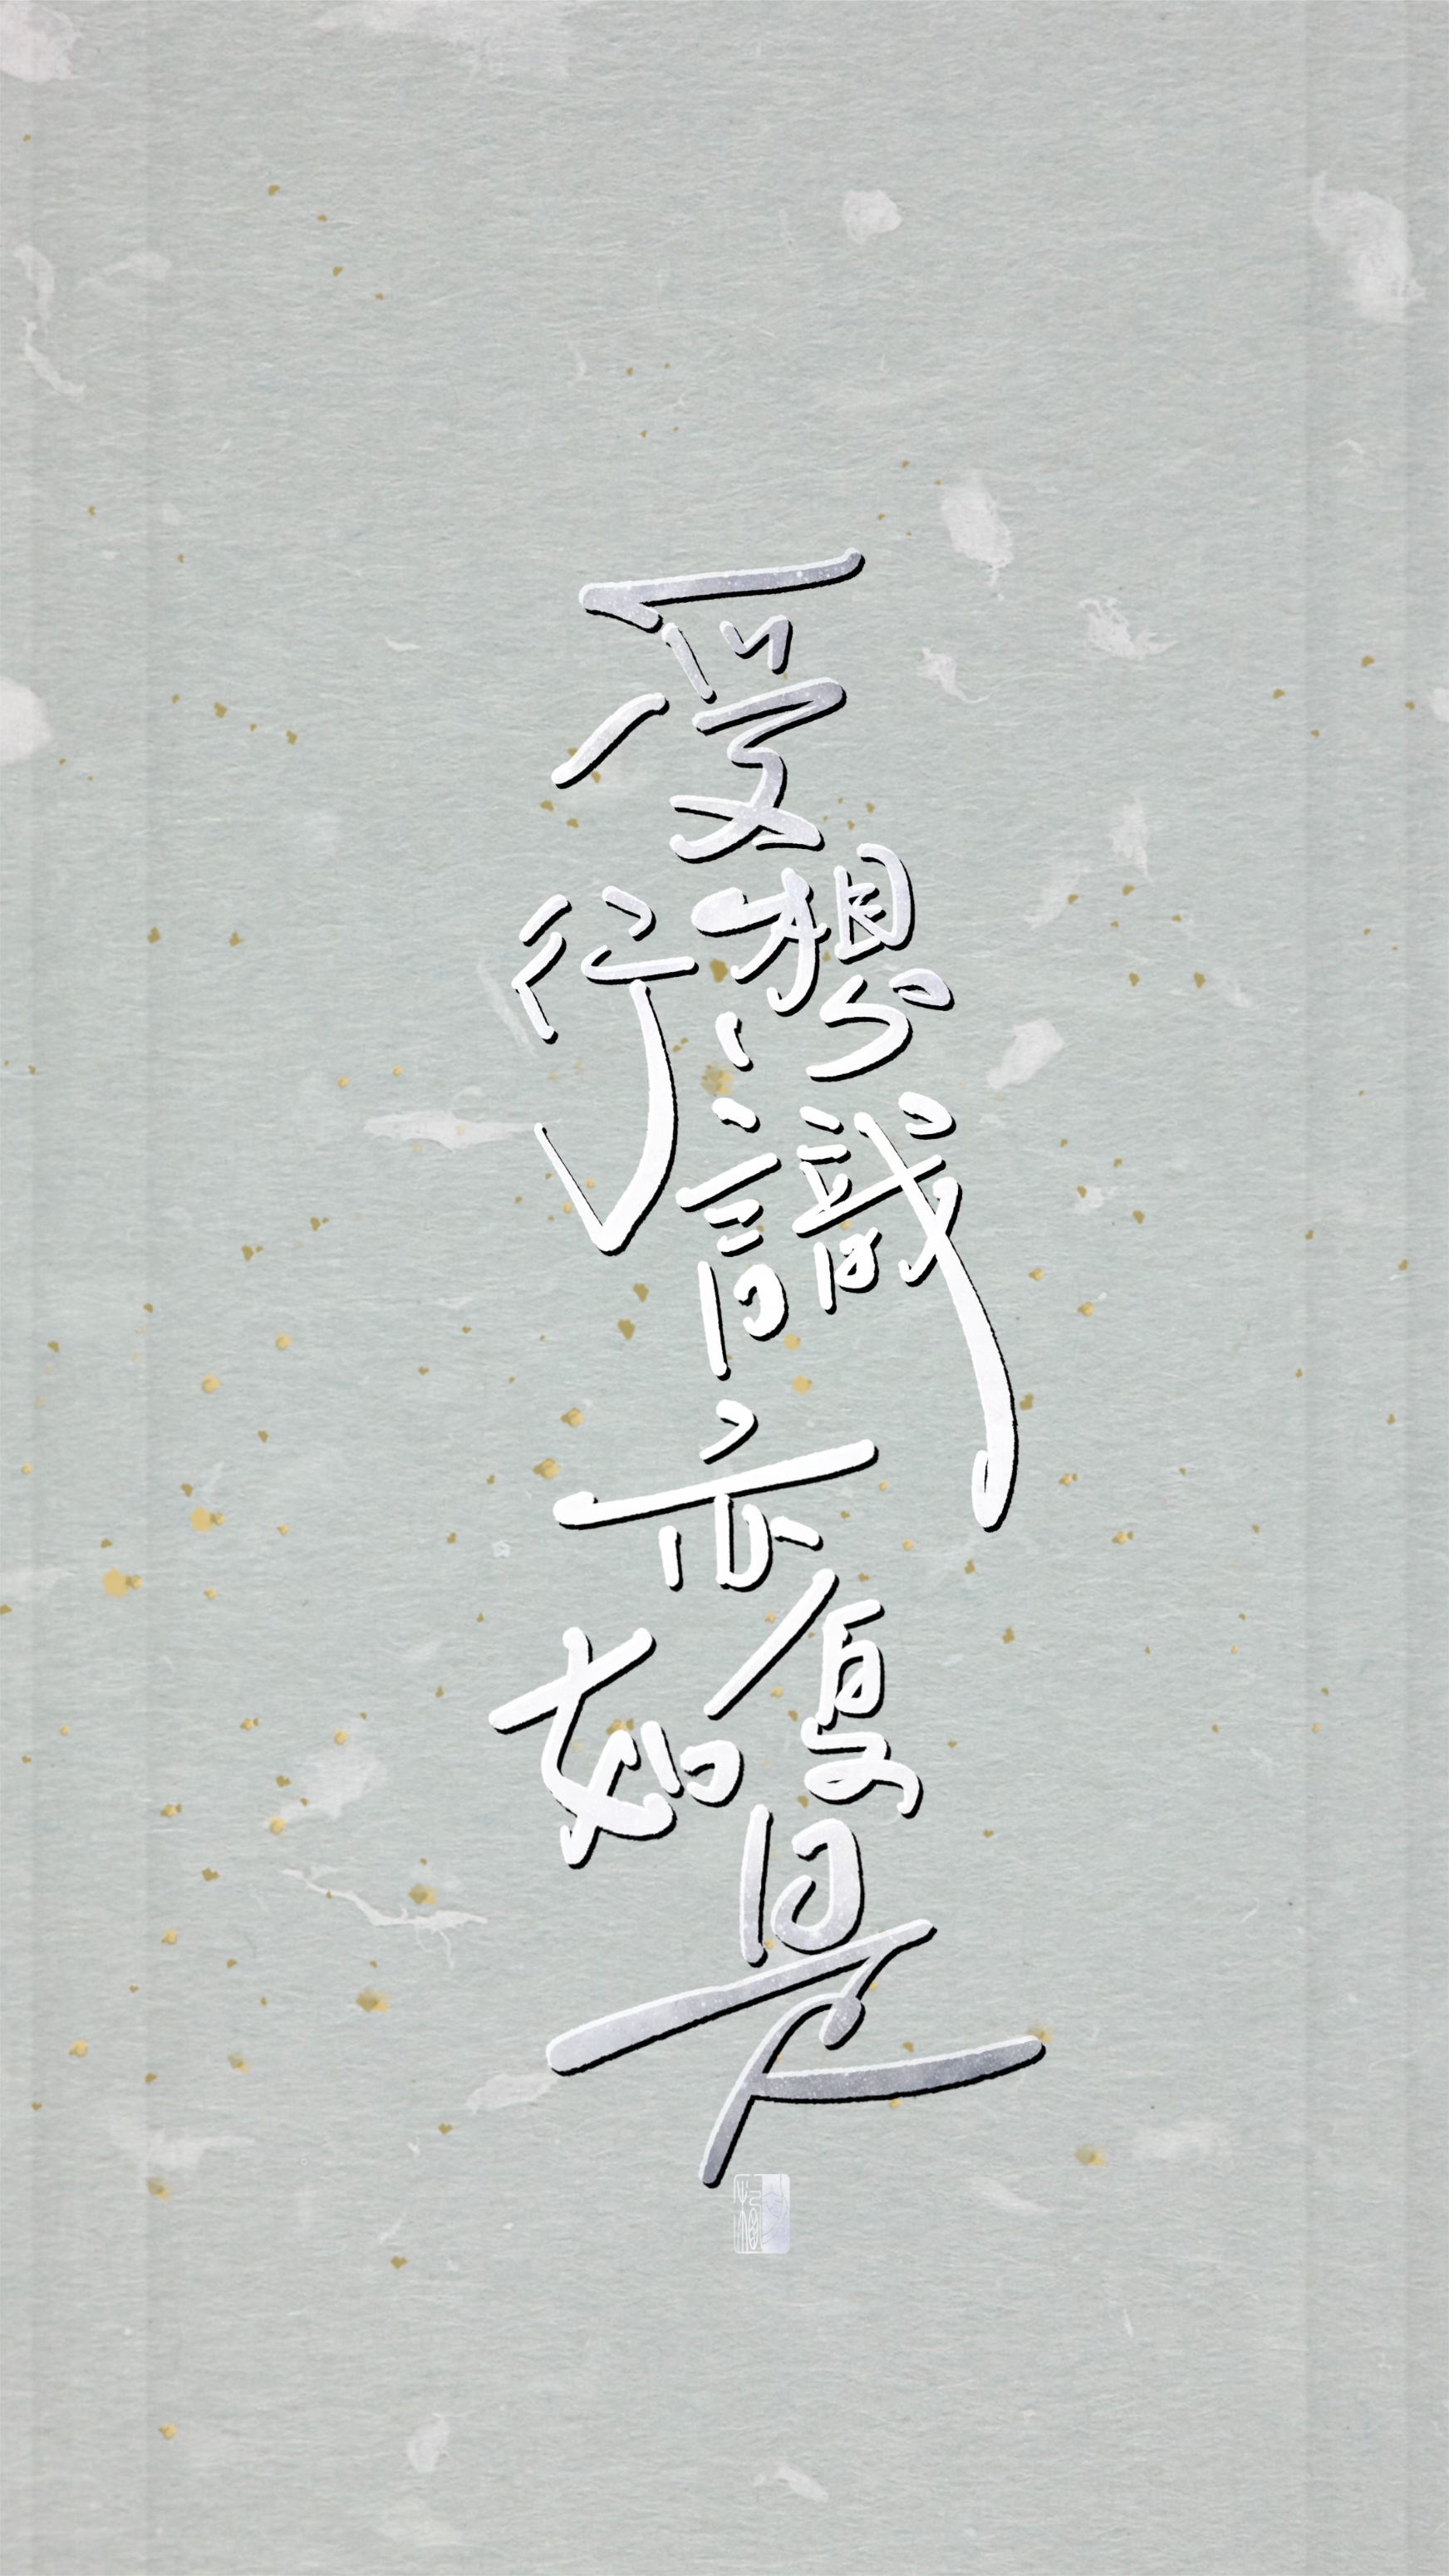 受想行識亦復如是